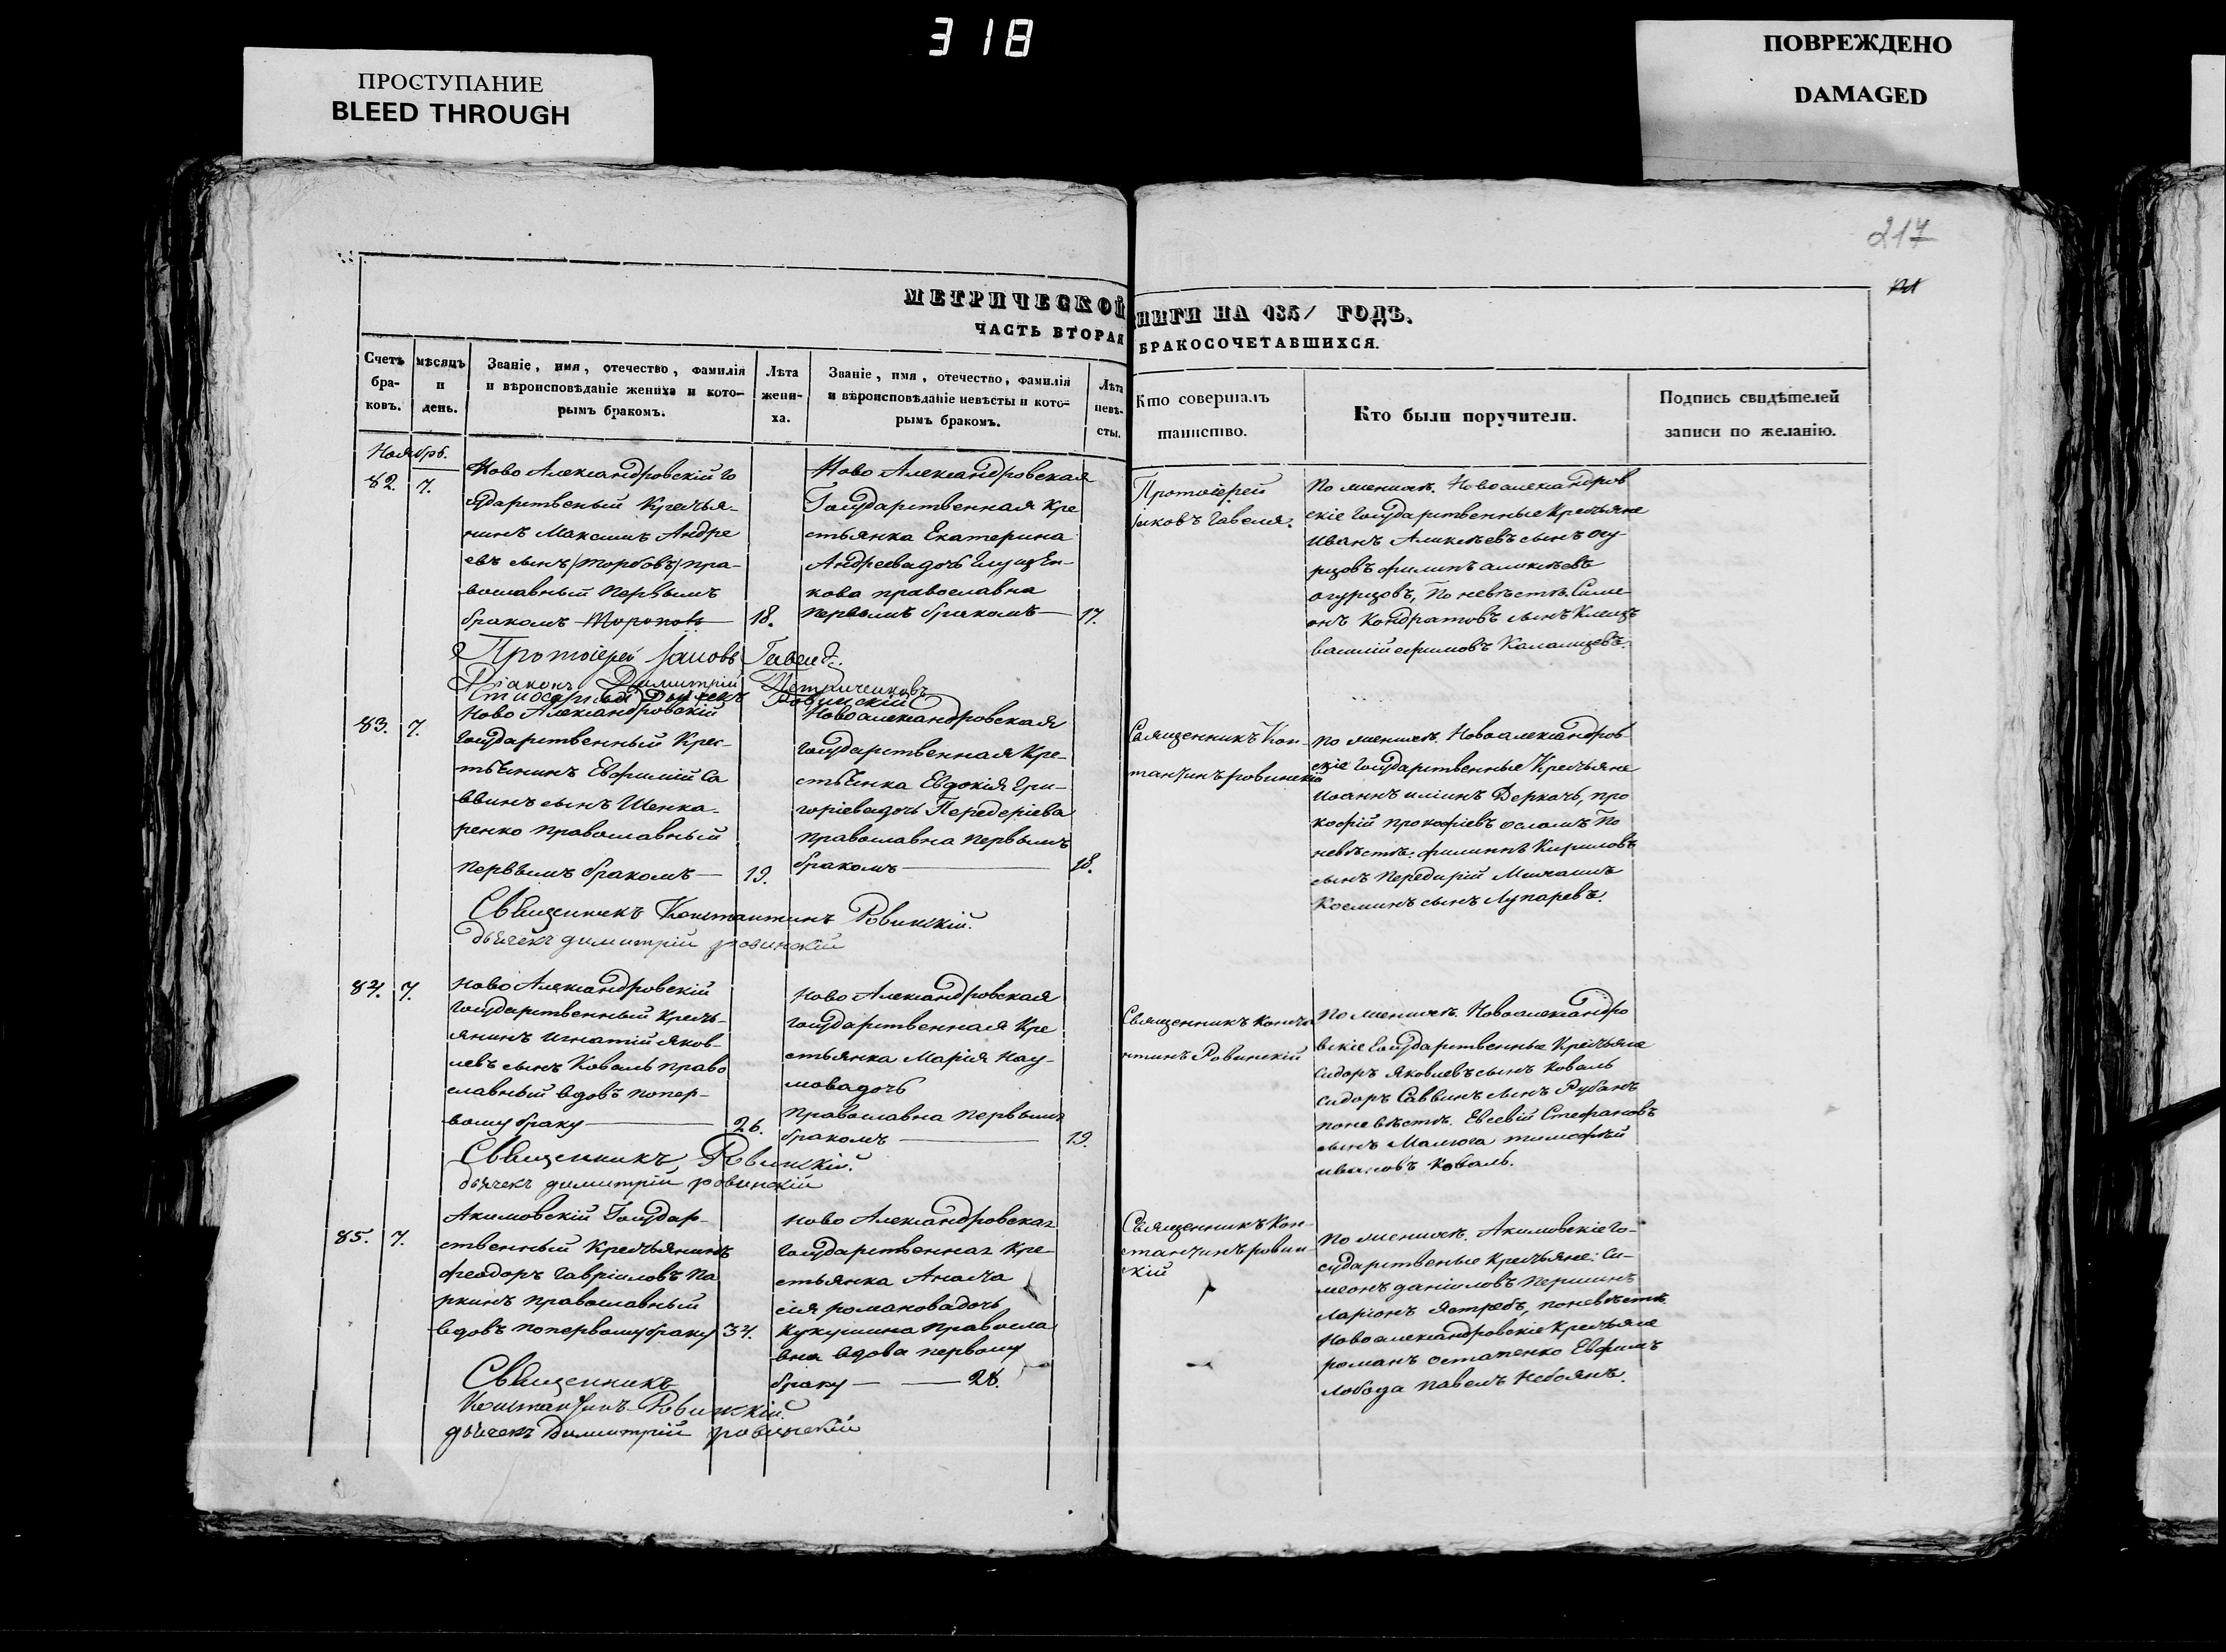 318
ПРОСТУПАНИЕ
BLEED THROUGH
ПОВРЕЖДЕНО
DAMAGED
217
МЕТРИЧЕСКОЙ
НИГИ НА 1851 ГОДЪ.
ЧАСТЬ ВТОРАЯ
БРАКОСОЧЕТАВШИХСЯ.
Счетъ бра-ковъ.
мѣсяцъ и день.
Званіе, имя, отечество, фамилія
и вѣроисповѣданіе жениха и кото-
рымъ бракомъ.
Лѣта жени-ха.
Званіе, имя, отечество, фамилія
и вѣроисповѣданіе невѣсты и кото-
рымъ бракомъ.
Лѣта невѣ-сты.
Кто совершалъ
таинство.
Кто были поручители.
Подпись свидѣтелей
записи по желанію.
Ноябрь.
82. 7.
Ново Александровскій го
сударственый Крестья-
нинъ Максимъ Андре
евъ сынъ /Торбовъ/ пра-
вославный первымъ
бракомъ
18.
Ново Александровская
Государственная Кре
стьянка Екатерина
Андреева дочь
кова православна
первымъ бракомъ
17.
Протоіерей
Іяковъ
По женихѣ. Новоалександров
скіе Государственные Крестьяне
Иванъ Аликсѣевъ сынъ Огу-
рцовъ филипъ аликсѣевъ
огурцовъ, По невѣстѣ Симе
онъ Кондратовъ сынъ
василій ефимовъ
Протоіерей Іаковъ
Діаконъ Димитрій
Дьячекъ Ровинскій
83. 7.
Ново Александровскій
Государственный Крес-
тьянинъ Евфимій Са
ввинъ сынъ Шенка-
ренко православный
первымъ бракомъ
19.
Новоалександровская
Государственная Кре-
стьянка Евдокія Гри-
горіева дочь Передеріева
православна первымъ
бракомъ
18.
Священникъ Кон-
стантинъ ровинскій
По женихѣ. Новоалександров
скіе Государственные Крестьяне
Иоаннъ иліинъ Деркачь, про
кофій прокофіевъ По
невѣстѣ: филиппъ Кириловъ
сынъ Передирій
Косминъ сынъ Лупаревъ.
Священникъ Константинъ Ровинскій.
дьячекъ димитрій ровинскій
84. 7.
Ново Александровскій
Государственный Кресть-
янинъ Игнатій Яков-
левъ сынъ Коваль право
славный вдовъ попер-
вому браку
26.
Ново Александровская
Государственная Кре
стьянка Марія Нау-
мова дочь
православна первымъ
бракомъ
19.
Священникъ Конста
нтинъ Ровинскій
По женихѣ. Новоалександро
вскіе Государственные Крестьяне
Сидоръ Яковлевъ сынъ Коваль
Сидоръ Саввинъ сынъ Рубанъ
по невѣстѣ. Евсевій Стефановъ
сынъ Малюга тимофѣй
ивановъ Коваль.
Священникъ Ровинскій.
дьячекъ димитрій ровинскій
85. 7.
Акимовскій Государ-
ственный Крестьянинъ
Феодоръ Гавріиловъ Па
ркинъ православный
вдовъ по первому браку
34.
Ново Александровская
Государственная Кре-
стьянка Анаста
сія романова дочь
Кукушина правосла
вна вдова первому
браку
28.
Священникъ Кон-
стантинъ ровин-
скій
По женихѣ. Акимовскіе Го-
сударственые Крестьяне: Си-
меонъ даніиловъ Першинъ
Ларіонъ Ястребъ, по невѣстѣ.
Новоалександровскіе Крестьяне
романъ остапенко Евфимъ
Лобода павелъ Небоянъ.
Священникъ
Константинъ Ровинскій.
дьячекъ Димитрій ровинскій